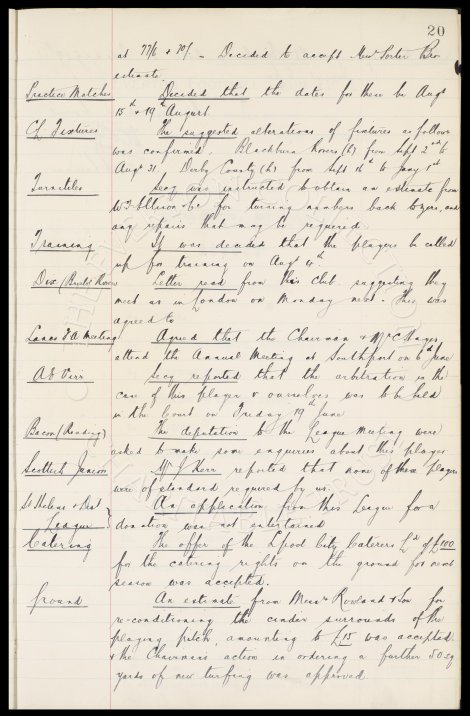 20
at 77/6 & 70/- Decided to accept Messrs Porter Bros
estimate.
Practice Matches Decided that the dates for these be Augt
15th & 19th August
CL Fixtures The suggested alterations of fixtures as follows
was confirmed. Blackburn Rovers (h) from Sept 2nd to
Augt 31. Derby County (h) from Sept 16th to Jany 1st
Turnstiles Secy was instructed to obtain an estimate from
W.T. Ellison & Co for turning numbers back to zero, and
any repairs that may be required.
Training It was decided that the players be called
up for training on Augt 4th
Dix (Bristol Rovers) Letter read from this club suggesting they
meet us in London on Monday next. This was
agreed to
Lancs F.A. Meeting Agreed that the Chairman & Mr C Hayes
attend the Annual Meeting at Southport on 6th June
Secy reported that the arbitration in the
case of this player & ourselves was to be held
in the Court on Friday 19th June
Bacon (Reading) The deputation to the League meeting were
asked to make some enquiries about this player
Scottish Juniors Mr J Kerr reported that none of these players
were of standard required by us.
St Helens & Dist League An application from this League for a
donation was not entertained
Catering The offer of the L'pool City Caterers Ld of £100
for the catering rights on the ground for next
season was accepted.
Ground An estimate from Messrs Rowland & Son for
re-conditioning the cinder surrounds of the
playing pitch, amounting to £15 was accepted
& the Chairmans action in ordering a further 50 sq
yards of new turfing was approved